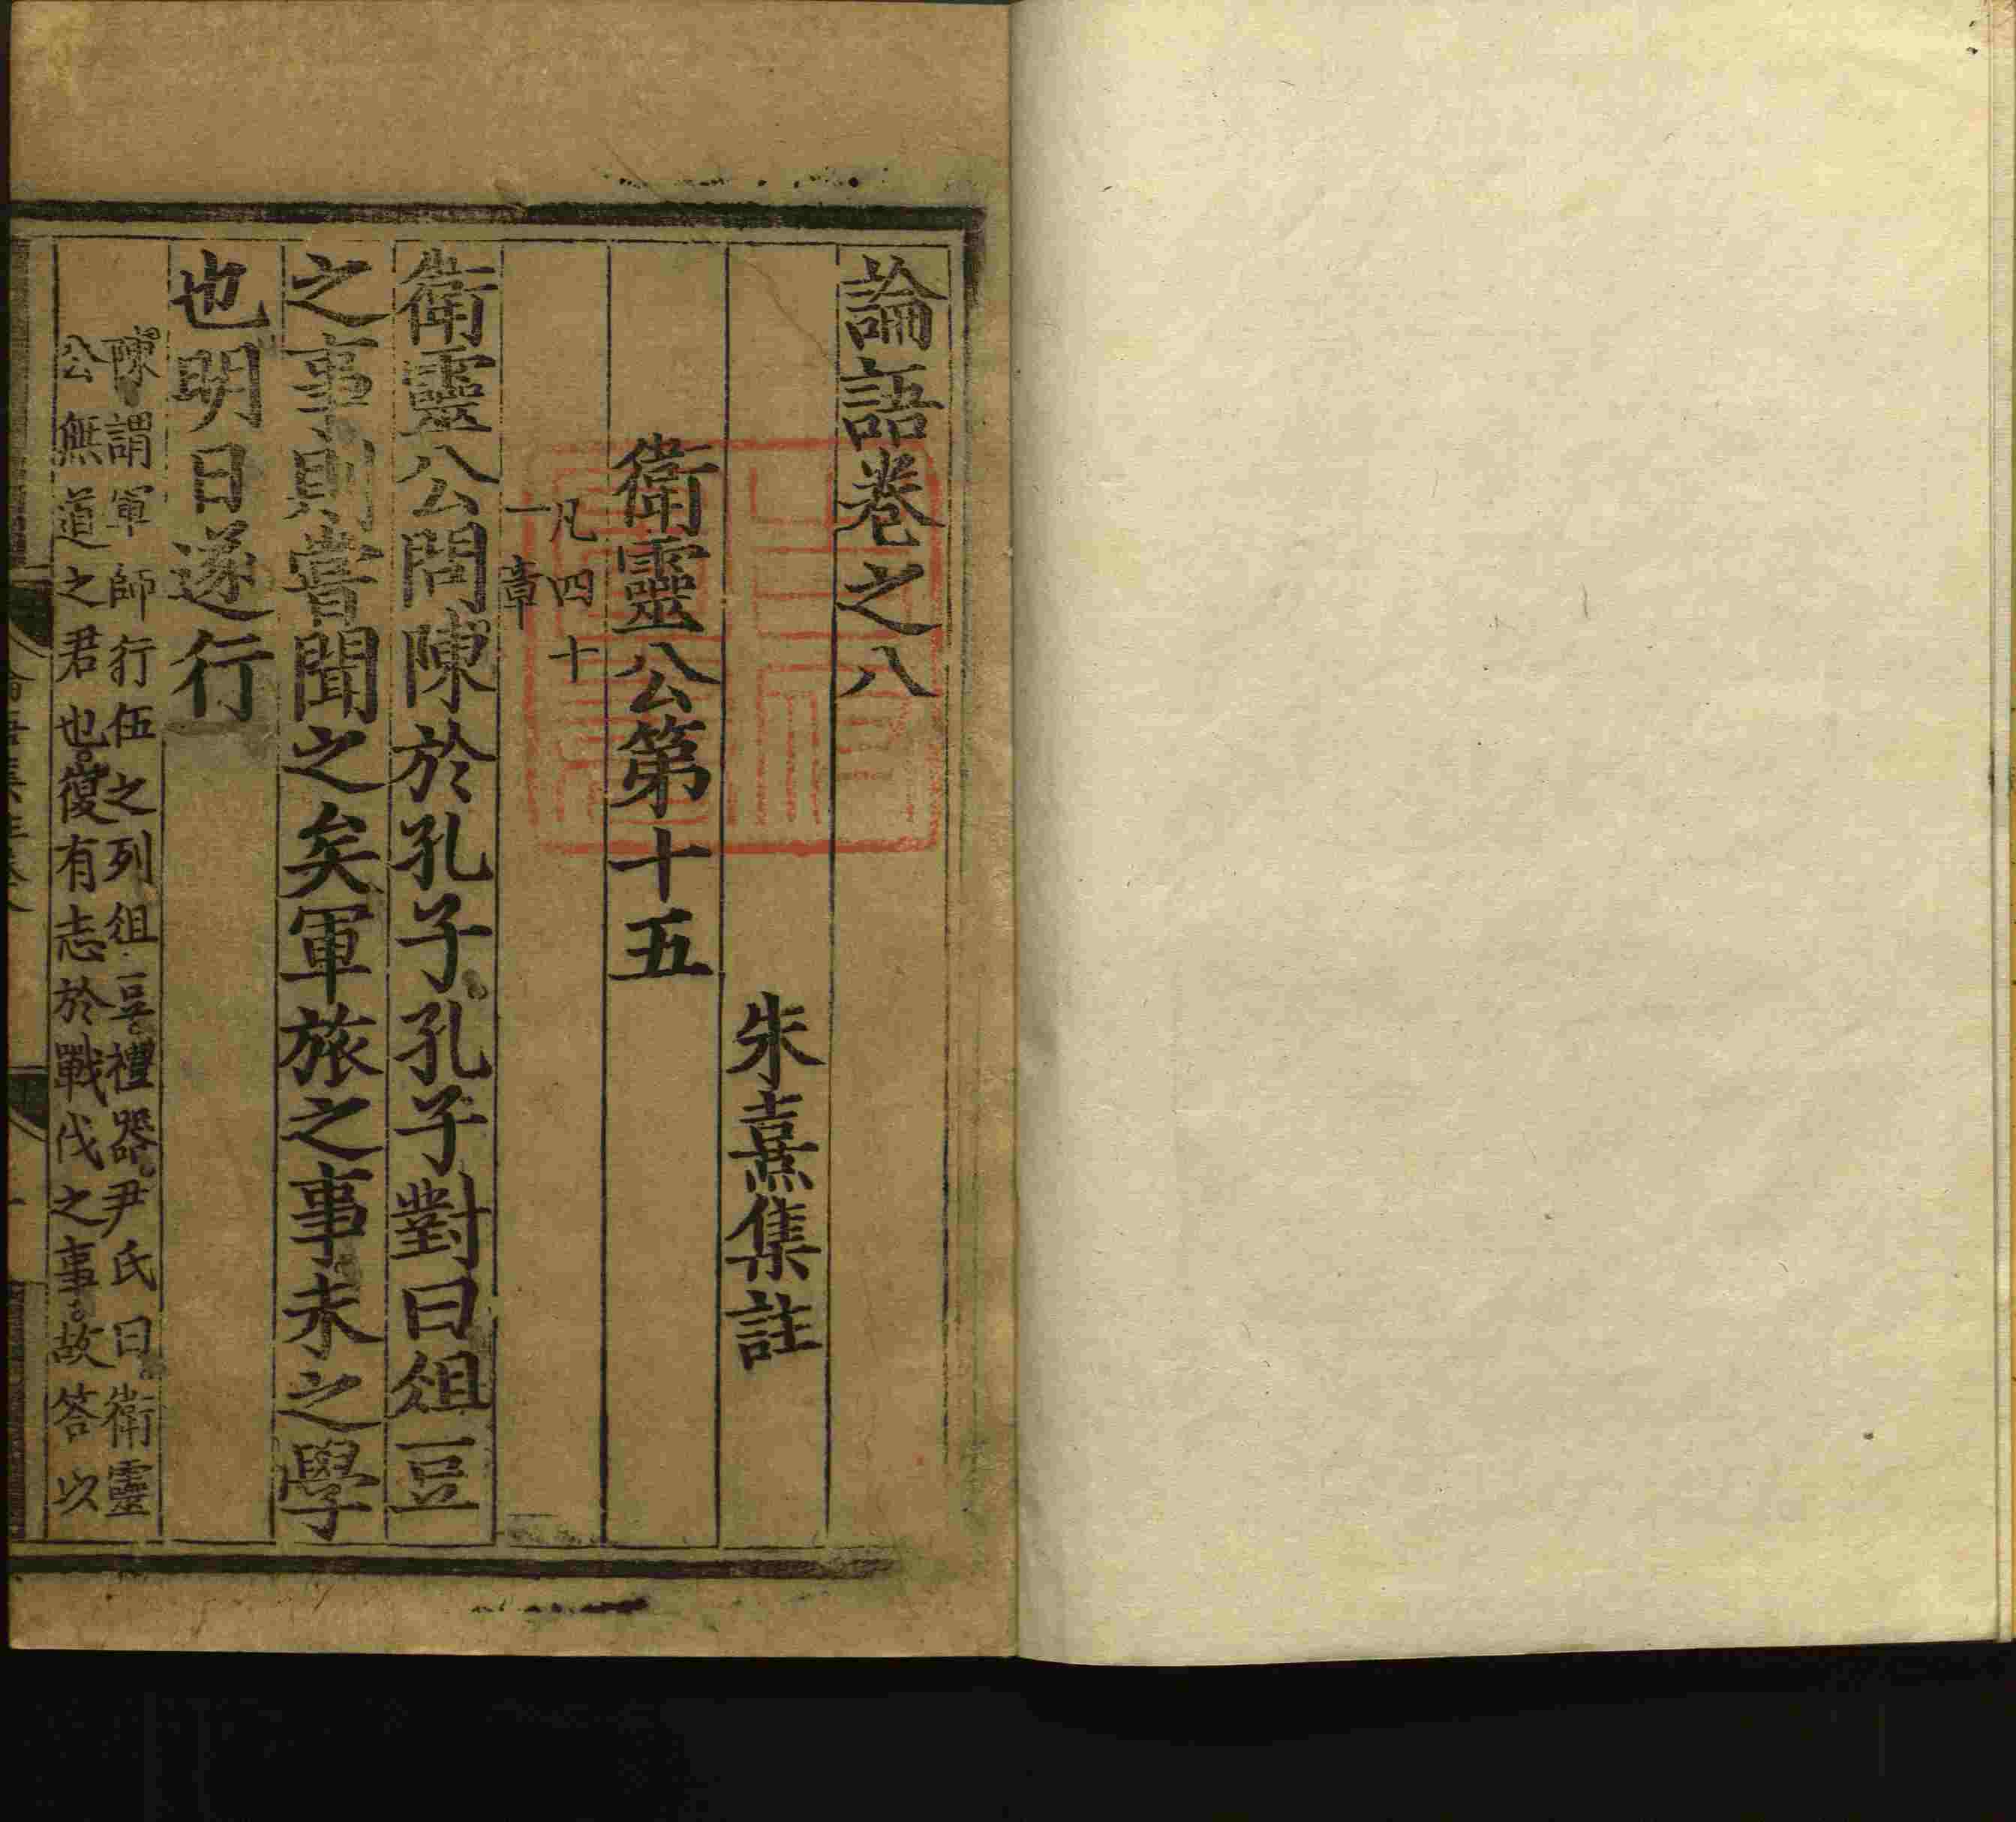 論語卷之八
朱熹集註
衛靈公第十五
凡四十
一章
衛靈公問陳於孔子孔子對曰俎豆
之事則嘗聞之矣軍旅之事未之學
也明日遂行
陳謂軍師行伍之列俎豆禮器尹氏曰衛靈
公無道之君也復有志於戰伐之事故答以